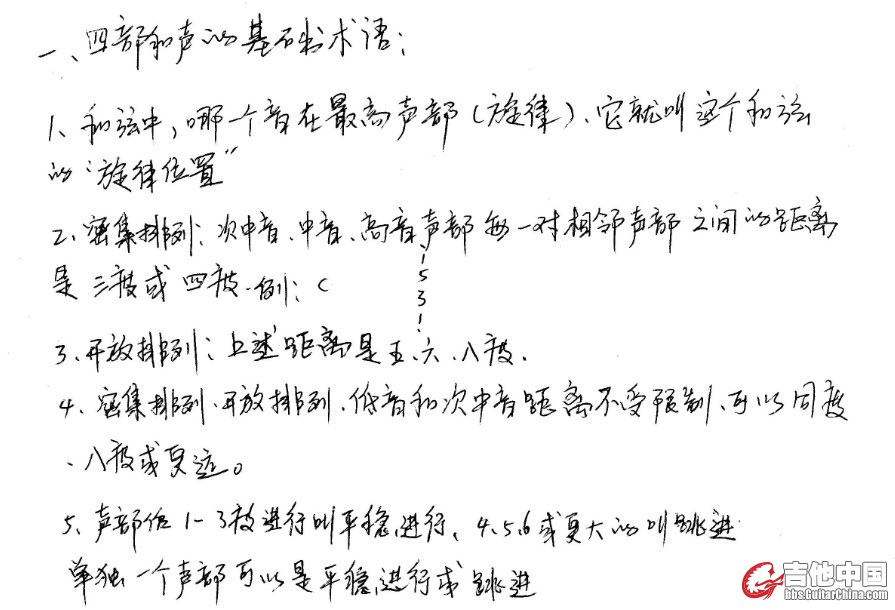 一、四部和声的基础术语：
1、和弦中，哪一个音在最高声部（旋律）、它就叫这个和弦
的“旋律位置”
2、密集排列：次中音、中音、高音声部每一对相邻声部之间的距离
是三度或四度.例：C
i
5
3
1
3、开放排列：上述距离是五、六、八度.
4、密集排列、开放排列、低音和次中音距离不受限制、可以同度
、八度或更远。
5、声部作1-3度进行叫平稳进行、4.5.6或更大的叫跳进
单独一个声部可以是平稳进行或跳进
吉他中国
bbs.GuitarChina.com